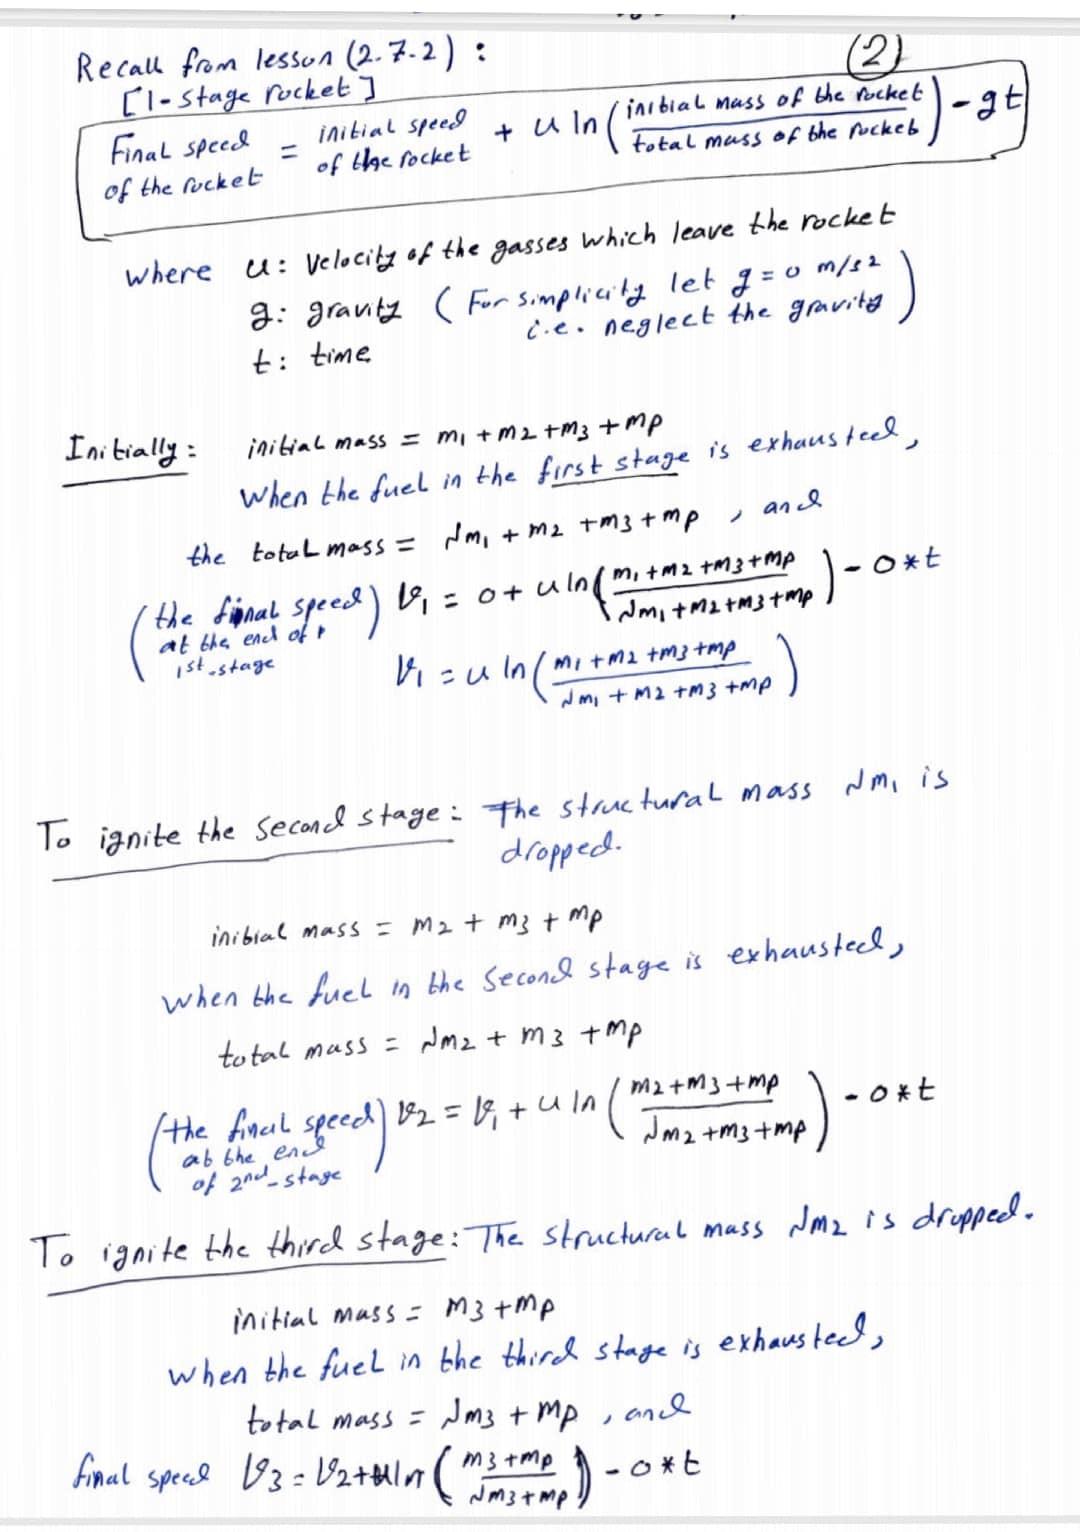 Recall from lesson (2.7.2) :
(2)
[1-stage rocket]
Final speed of the rocket = initial speed of the rocket + u ln ( initial mass of the rocket / total mass of the rocket ) - gt
where u: Velocity of the gasses which leave the rocket
g: gravity ( For simplicity let g = 0 m/s2
i.e. neglect the gravity )
t: time
Initially: initial mass = m1 + m2 + m3 + mp
When the fuel in the first stage is exhausted,
the total mass = Nm1 + m2 + m3 + mp , and
(the final speed at the end of 1st-stage) V1 = 0 + u ln ( m1 + m2 + m3 + mp / Nm1 + m2 + m3 + mp ) - 0*t
V1 = u ln ( m1 + m2 + m3 + mp / Nm1 + m2 + m3 + mp )
To ignite the second stage: The structural mass Nm1 is
dropped.
initial mass = m2 + m3 + mp
when the fuel in the second stage is exhausted,
total mass = Nm2 + m3 + mp
(the final speed at the end of 2nd-stage) V2 = V1 + u ln ( m2 + m3 + mp / Nm2 + m3 + mp ) - 0*t
To ignite the third stage: The structural mass Nm2 is dropped.
initial mass = m3 + mp
when the fuel in the third stage is exhausted,
total mass = Nm3 + mp , and
final speed V3 = V2 + u ln ( m3 + mp / Nm3 + mp ) - 0*t